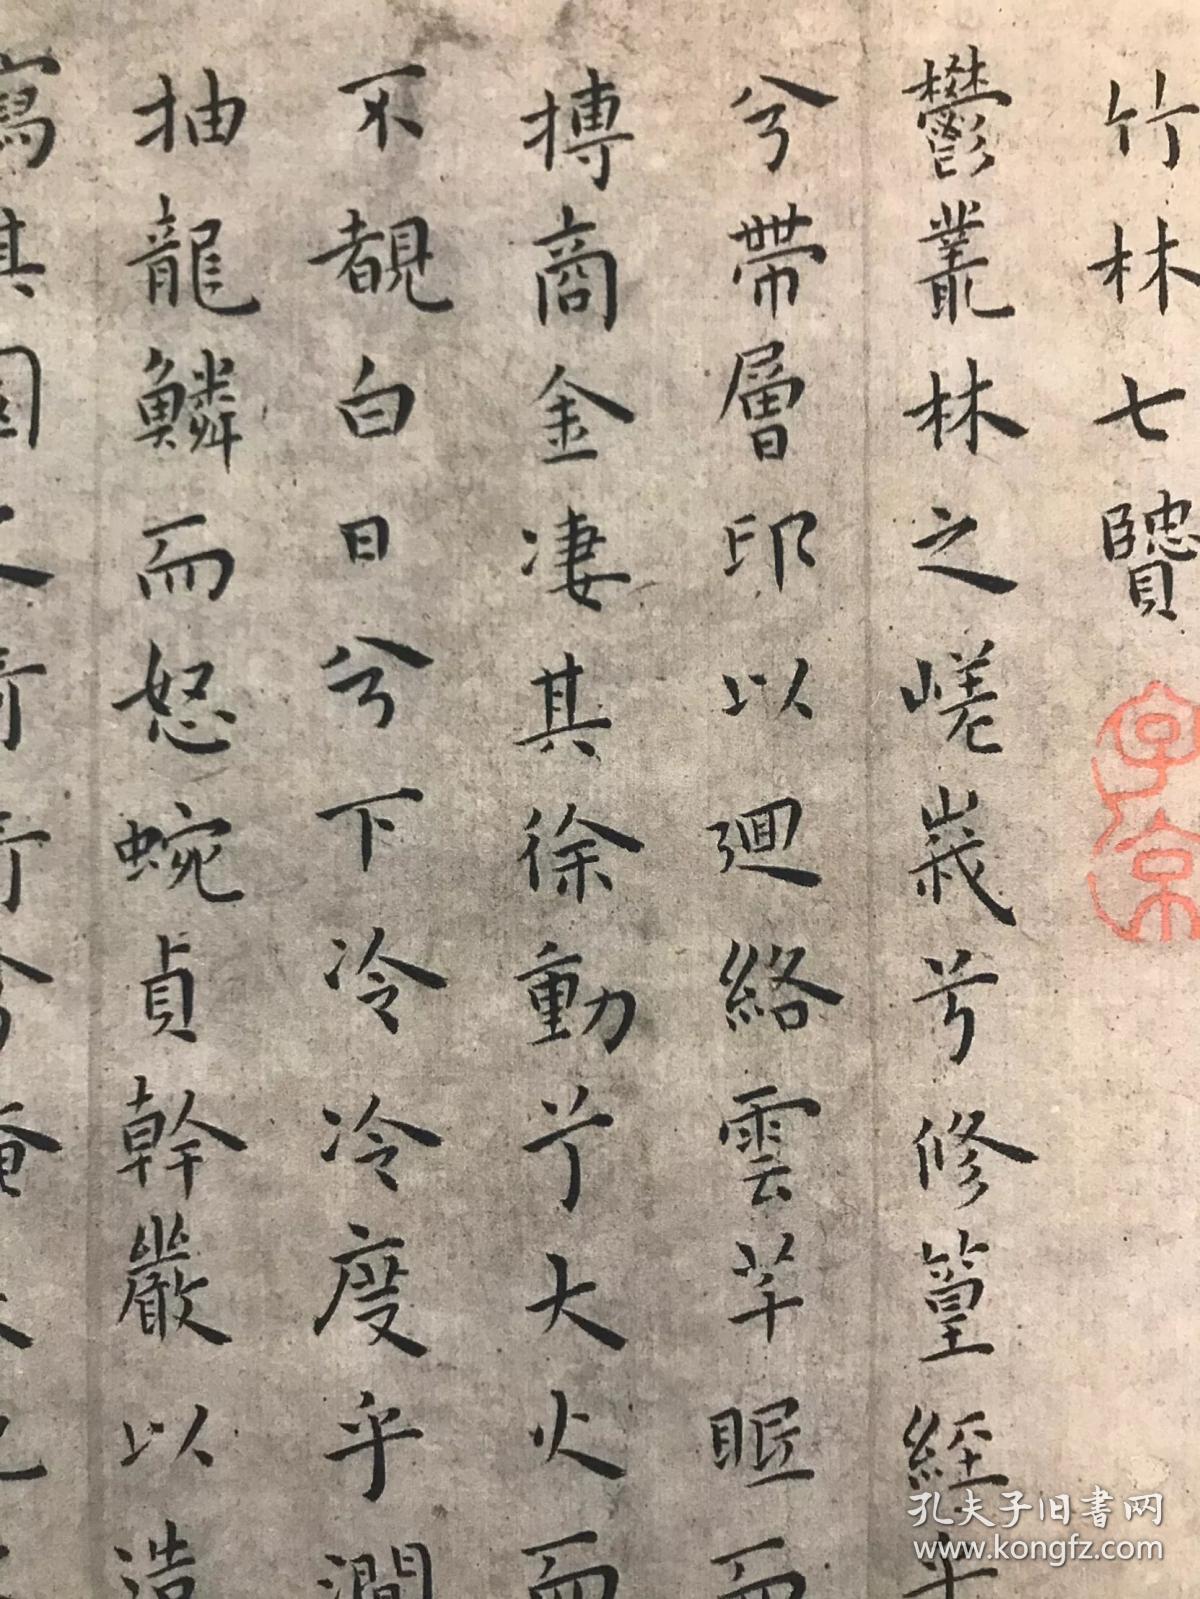 竹林七賢
鬱叢林之嵯峩兮修篁經乎
兮帶層邛以迴絡雲芊眠而
摶商金凄其徐動兮大火而
不覩白日兮下冷冷度乎澗
抽龍鱗而怒蜿貞幹嚴以造
寫其國
孔夫子旧書网
www.kongfz.com